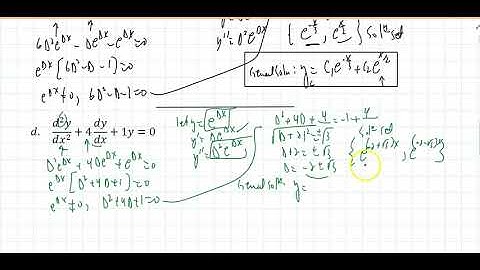 6D²e^{Dx} - De^{Dx} - e^{Dx} = 0
e^{Dx}[6D² - D - 1] = 0
e^{Dx} ≠ 0, 6D² - D - 1 = 0
y'' = D²e^{Dx}
{e^{-x/3}, e^{x/2}} sol'n set
General soln: y = c₁e^{-x/3} + c₂e^{x/2}
d. d²y/dx² + 4 dy/dx + 1y = 0
D²e^{Dx} + 4De^{Dx} + e^{Dx} = 0
e^{Dx}[D² + 4D + 1] = 0
e^{Dx} ≠ 0, D² + 4D + 1 = 0
let y = e^{Dx}
y' = De^{Dx}
y'' = D²e^{Dx}
D² + 4D + 4 = -1 + 4
√(D + 2)² = ±√3
D + 2 = ±√3
D = -2 ± √3
Sol'n set
{e^{(-2+√3)x}, e^{(-2-√3)x}}
General soln y =